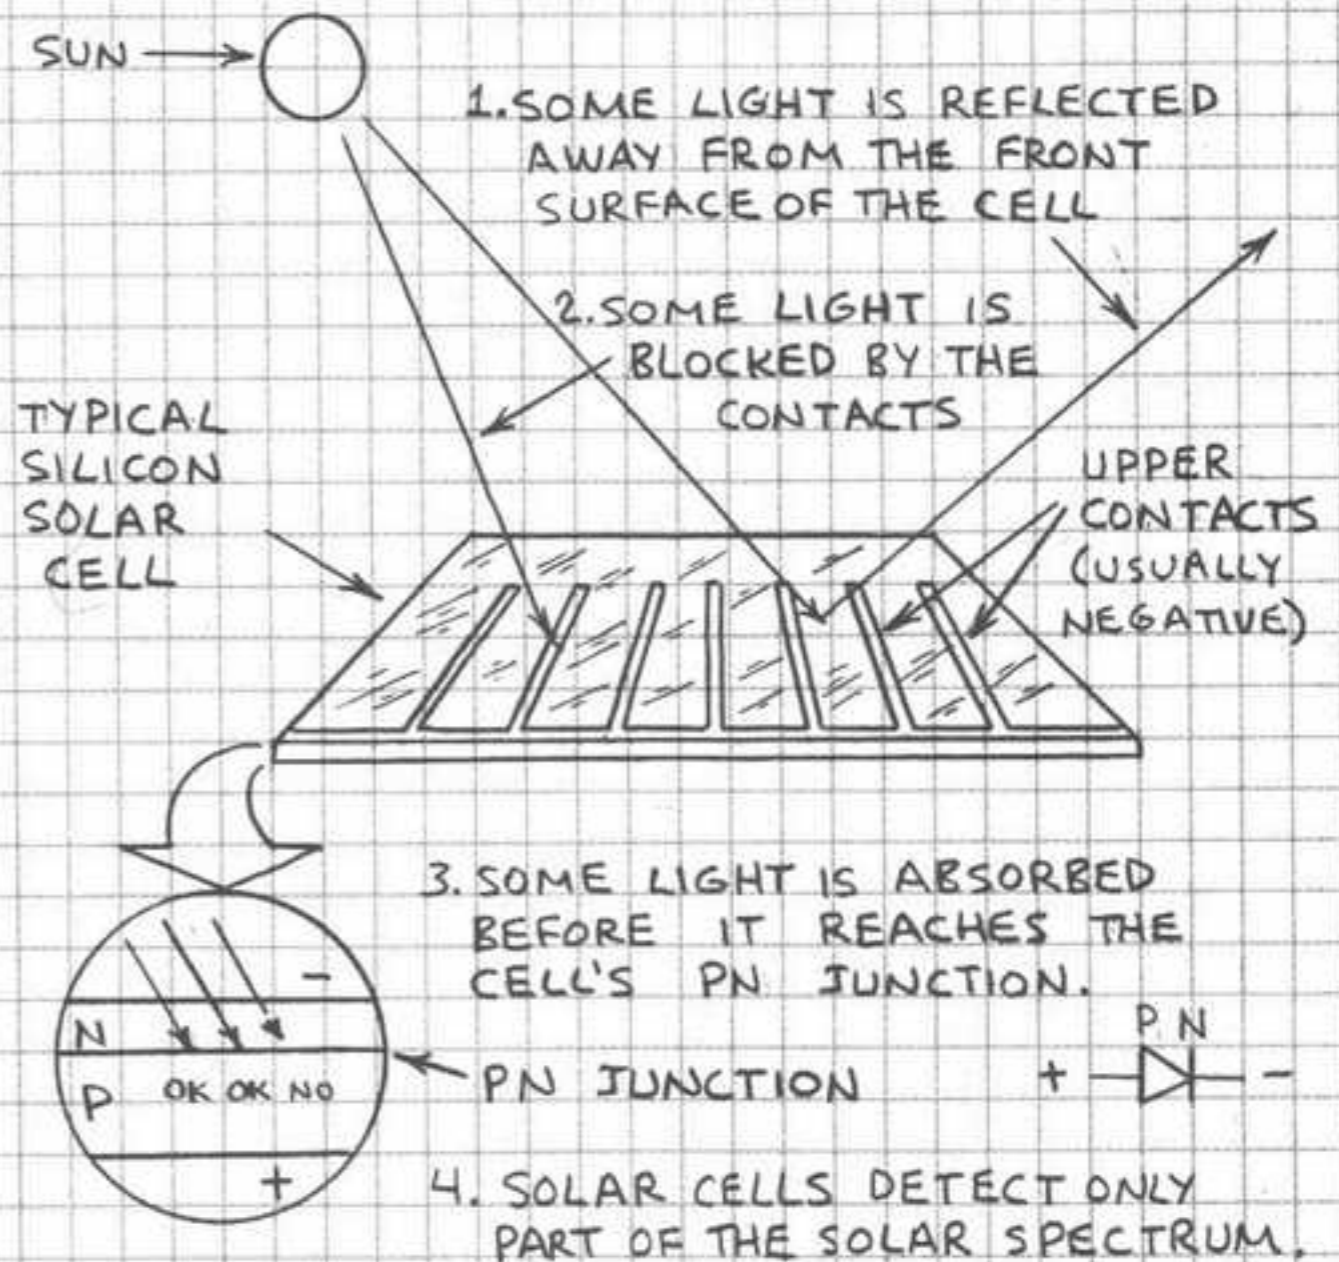 SUN
1. SOME LIGHT IS REFLECTED
AWAY FROM THE FRONT
SURFACE OF THE CELL
2. SOME LIGHT IS
BLOCKED BY THE
CONTACTS
TYPICAL
SILICON
SOLAR
CELL
UPPER
CONTACTS
(USUALLY
NEGATIVE)
3. SOME LIGHT IS ABSORBED
BEFORE IT REACHES THE
CELL'S PN JUNCTION.
-
N
P OK OK NO
+
PN JUNCTION
P N
+ -
4. SOLAR CELLS DETECT ONLY
PART OF THE SOLAR SPECTRUM.